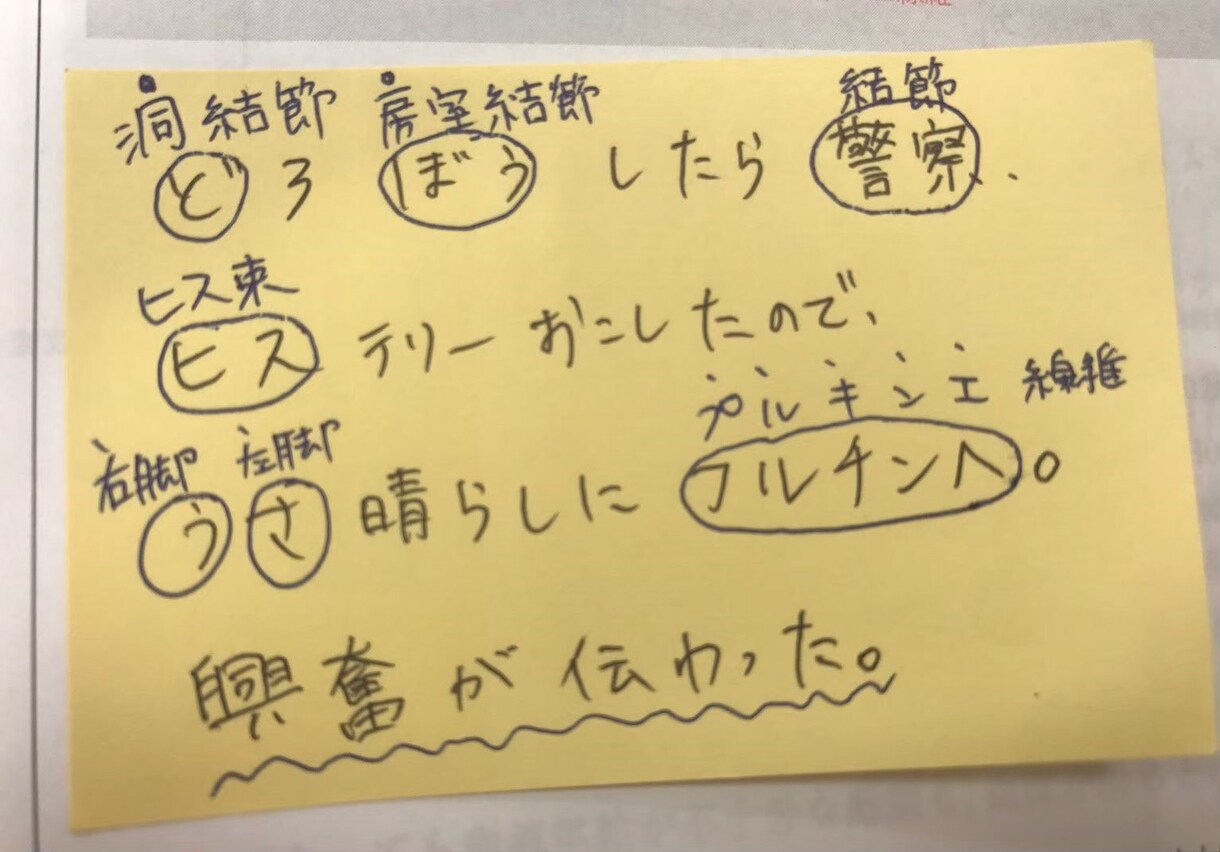 洞結節 房室結節 結節
どろ ぼう したら 警察、
ヒス束
ヒステリーおこしたので、
プルキンエ 線維
右脚 左脚
うさ晴らしに フルチンへ。
興奮が伝わった。